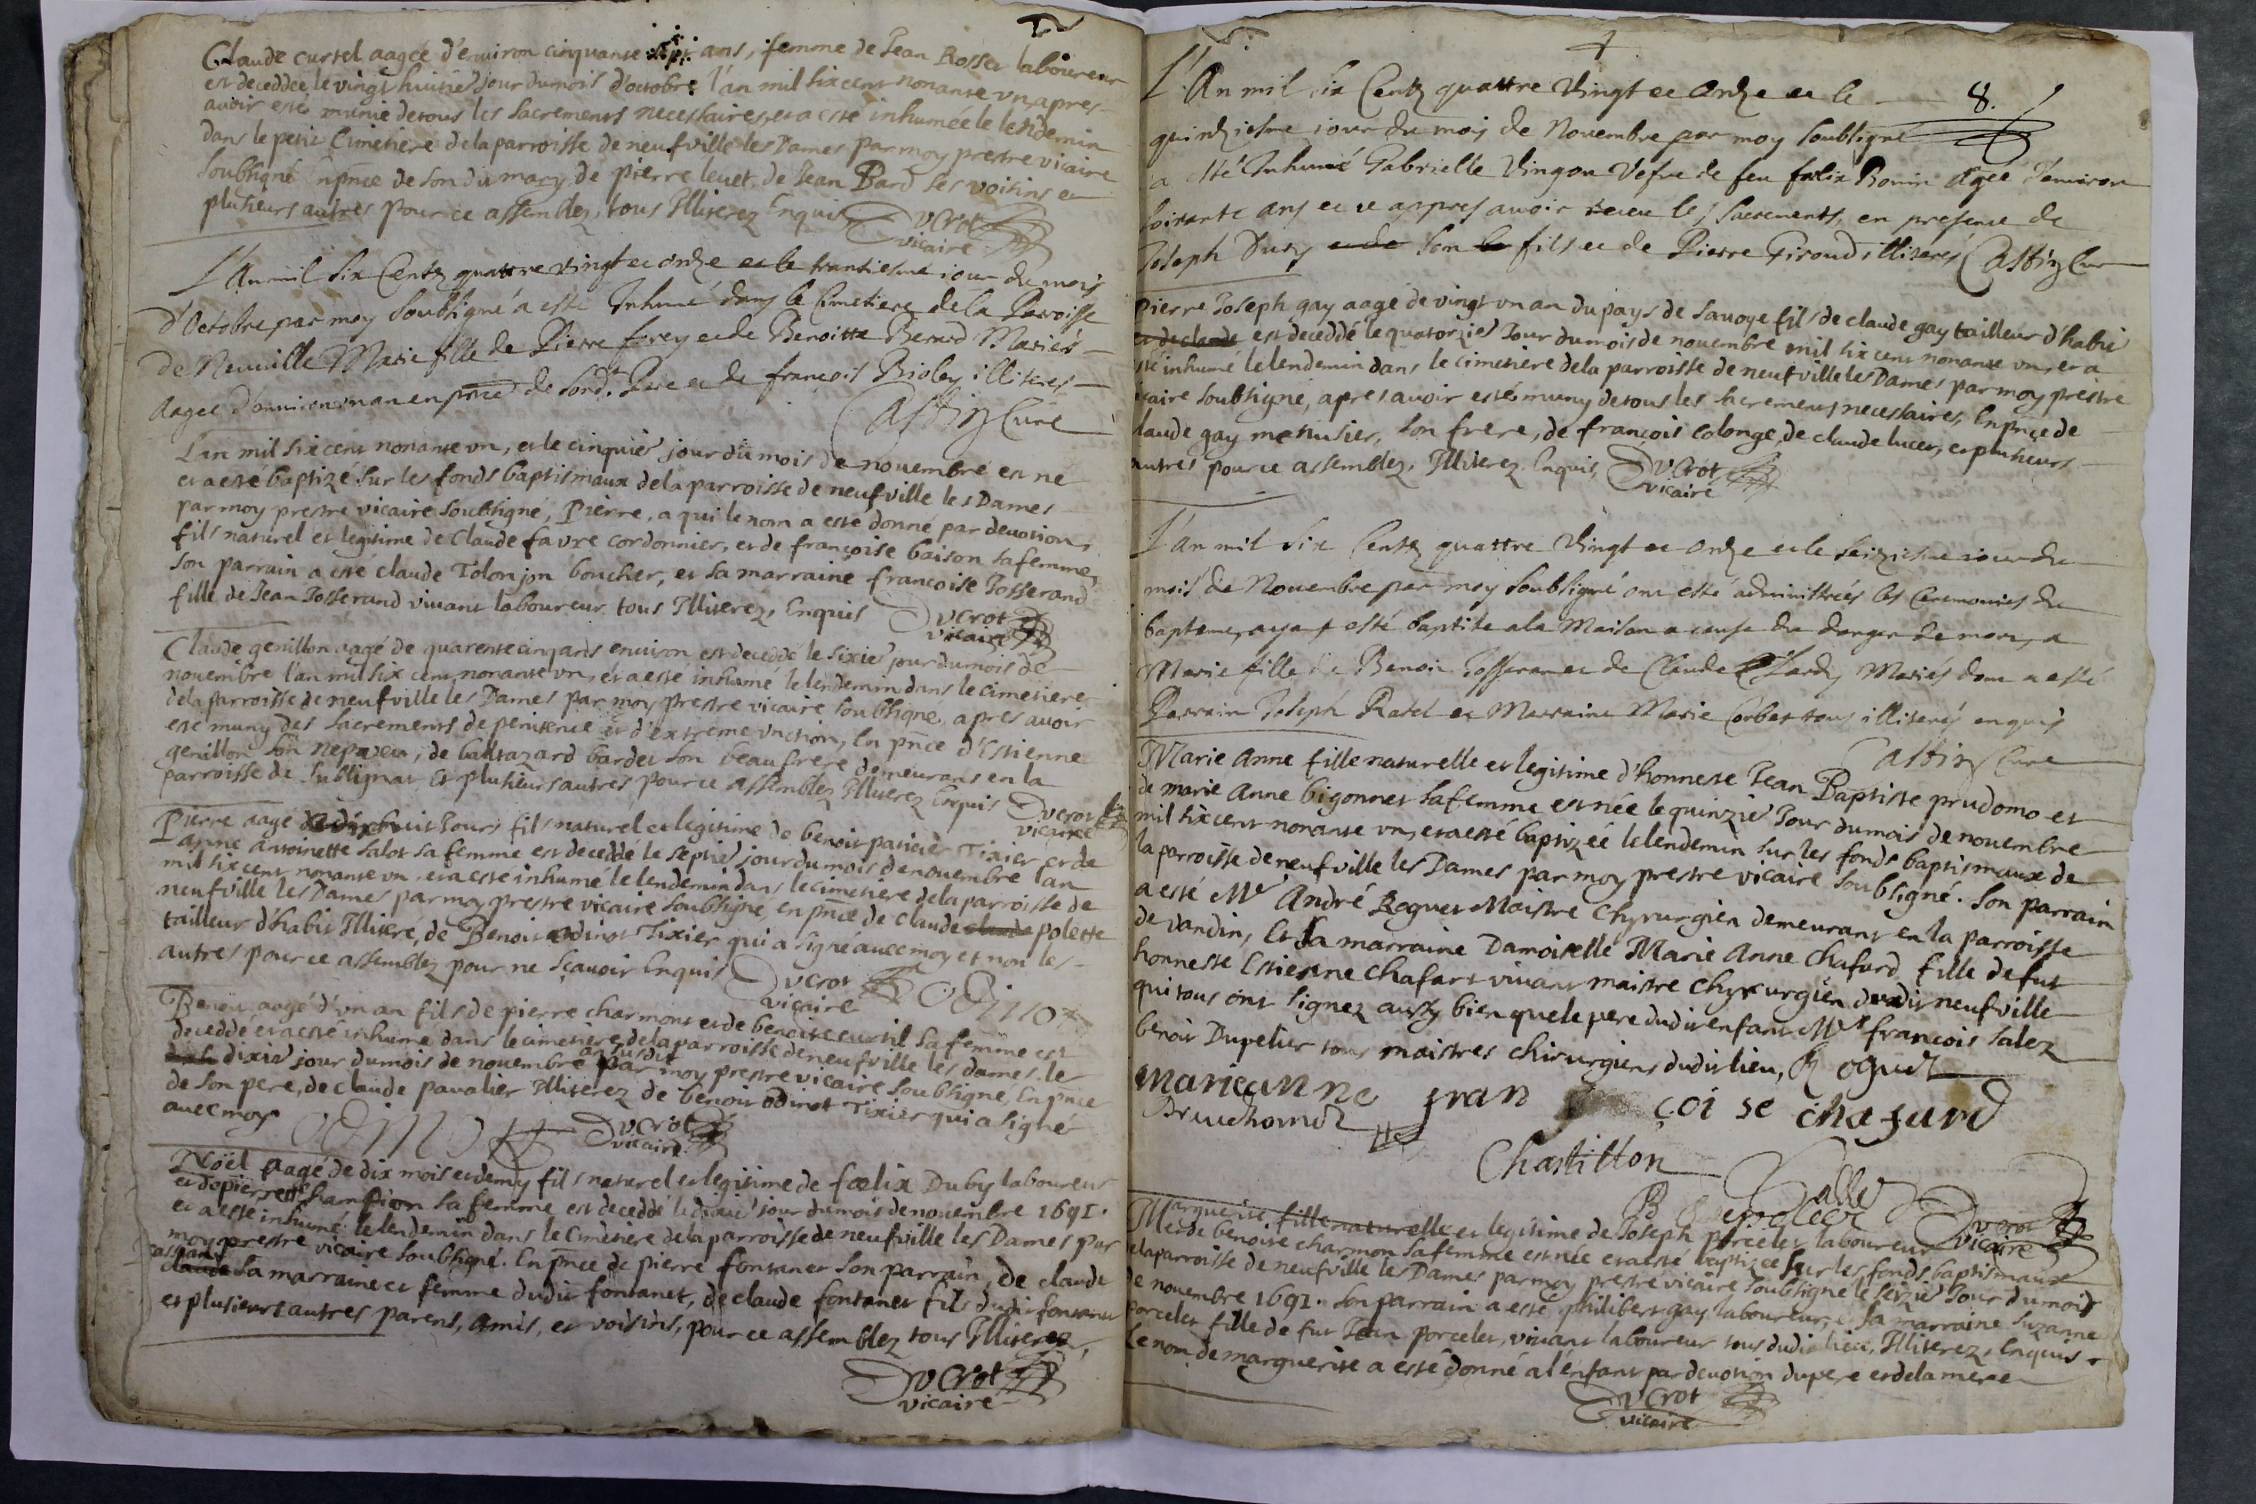 Claude curtel aagée d'enuiron cinquante sept ans, femme de Jean Rosset laboureur
est deceddée le vingt huitie jour du mois d'octobre l'an mil six cent nonante vn, apres
auoir esté munie de tous les sacrements necessaires, et a esté inhumée le lendemin
dans le petit Cimetiere de la parroisse de neufville les Dames par moy prestre vicaire
soubsigné En pnce de son du mary, de pierre leuet, de Jean Bard ses voisins et
plusieurs autres pour ce assemblez, tous Illiterez Enquis Ducrot
vicaire
L'An mil Six Centz quattre vingt et onze et le trantiesme iour du mois
d'Octobre par moy soubsigné a esté Inhumé dans le Cimetiere de la Paroisse
de Neuuille Marie fille de Pierre frey et de Benoitte Berard Mariés
Aagee d'enuiron vn an en pnce de sond. Pere et de françois Bioley illiteres
Curé
L'an mil six cent nonante vn, et le cinquie jour du mois de nouembre est né
et a esté baptizé sur les fonds baptismaux de la parroisse de neufville les Dames
par moy prestre vicaire soubsigné, Pierre, a qui le nom a esté donné par deuotion,
fils naturel et legitime de Claude favre cordonnier, et de françoise baison sa femme,
son parrain a esté claude Tolonjon boucher, et sa marraine francoise Josserand
fille de Jean Josserand viuant laboureur tous Illiterez, Enquis Ducrot
vicaire
Claude genillon aagé de quarente cinq ans enuiron est deceddé le sixie jour du mois de
nouembre l'an mil six cent nonante vn, et a esté inhumé le lendemin dans le cimetiere
de la parroisse de neufville les Dames par moy prestre vicaire soubsigné, apres auoir
esté muny des sacrements de penitence et d'extreme vnction, En pnce d'Estienne
genillon son nepveu, de baltazard bardet son beaufrere demeurans en la
parroisse de sublignat, Et plusieurs autres pour ce assemblez Illiterez Enquis Ducrot
vicaire
Pierre aagé de dixhuit Jours fils naturel et legitime de benoit paticier Tixier et de
anne antoinette salot sa femme est deceddé le septie jour du mois de nouembre l'an
mil six cent nonante vn et a esté inhumé le lendemin dans le cimetiere de la parroisse de
neufville les Dames par moy prestre vicaire soubsigné, en pnce de claude claude polette
tailleur d'habit Illiteré, de Benoit odinot Tixier qui a signé auec moy et non les
autres pour ce assemblez pour ne sçauoir Enquis Ducrot odinot
vicaire
Benoit aagé d'vn an fils de pierre charmont et de benoite curtil sa femme est
deceddé et a esté inhumé dans le cimetiere de la parroisse de neufville les dames le
dixie jour du mois de nouembre an susdit par moy prestre vicaire soubsigné, En pnce
de son pere, de claude pavalier Illiterez de benoit odinot Tixier qui a signé
auec moy odinot Ducrot
vicaire
Noël aagé de dix mois et demy fils naturel et legitime de fœlix Duby laboureur
et de pierrette champion sa femme est deceddé le jour du mois de nouembre 1691.
et a esté inhumé le lendemin dans le cimetiere de la parroisse de neufville les Dames par
moy prestre vicaire soubsigné. En pnce de pierre fontanet son parrain, de claude
claude sa marraine et femme dudit fontanet, de claude fontanet fils dudit fontanet
et plusieurs autres parens, amis, et voisins, pour ce assemblez tous Illiterez,
Ducrot
vicaire
L'An mil six Centz quattre Vingt et Onze et le 8.
quinziesme iour du mois de Nouembre par moy soubsigné
a esté Inhumé Gabrielle Vingon Vefue de feu felix Bonin Agée d'enuiron
soixante ans et ce appres auoir receu les sacrements, en presence de
Joseph Dury et de son fils et de Pierre Giroud illiterés Curé
Pierre Joseph gay aagé de vingt vn an du pays de sauoye fils de claude gay tailleur d'habit
et de claude est deceddé le quatorzie Jour du mois de nouembre mil six cent nonante vn, et a
esté inhumé le lendemin dans le cimetiere de la parroisse de neufville les Dames par moy prestre
vicaire soubsigné, apres auoir esté muny de tous les sacrements necessaires, En pnce de
claude gay menusier, son frere, de françois colonge, de claude lucet, et plusieurs
autres pour ce assemblez, Illiterez Enquis, Ducrot
vicaire
L'an mil Six Centz quattre Vingt et Onze et le seiziesme iour du
mois de Nouembre par moy soubsigné ont esté administrées les Ceremonies du
bapteme, ayant esté baptisée a la Maison a cause du danger de mort, a
Marie fille de Benoit Josseran et de Claude Lardy Mariés dont a esté
Parrain Joseph Ratel et Marraine Marie Corbet tous illiterés enquis
Curé
Marie Anne fille naturelle et legitime d'honneste Jean Baptiste prudomo et
de marie anne bigonnet sa femme est née le quinzie Jour du mois de nouembre
mil six cent nonante vn, et a esté baptizée le lendemin sur les fonds baptismaux de
la parroisse de neufville les Dames par moy prestre vicaire soubsigné. Son parrain
a esté Mr André Roguet Maistre chyrurgien demeurant en la parroisse
de vandin, Et sa marraine Damoiselle Marie Anne Chafard fille de fut
honneste Estienne Chafart viuant maistre chyrurgien dudit neufville
qui tous ont signez aussy bien que le pere dudit enfant Mr françois salez
benoit Dupelier tous maistres chirurgiens dudit lieu, Roguet
marieanne fran çoi se chafard
Chastillon
Ducrot
vicaire
Marguerite fille naturelle et legitime de Joseph porcelet laboureur
et de benoite charmon sa femme est née et a esté baptizée sur les fonds baptismaux
de la parroisse de neufville les Dames par moy prestre vicaire soubsigné le seizie Jour du mois
de nouembre 1691. son parrain a esté philibert gay laboureur, et sa marraine suzanne
porcelet fille de fut Jean porcelet, viuant laboureur tous dudit lieu, Illiterez, Enquis
Le nom de marguerite a esté donné a l'enfant par deuotion du pere et de la mere
Ducrot
vicaire